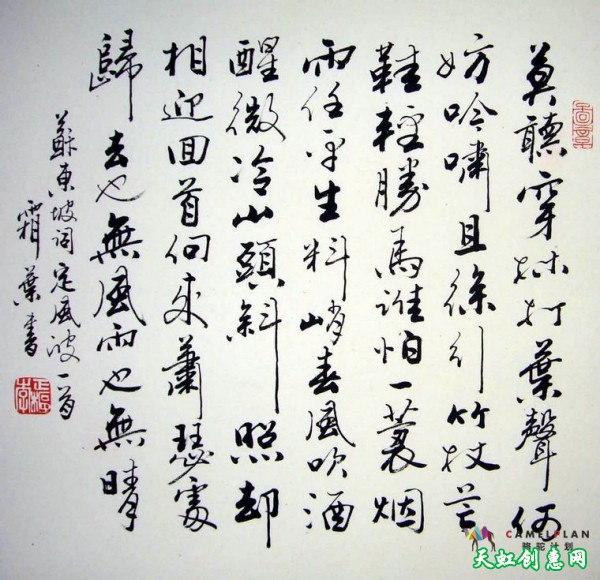 莫聽穿林打葉聲何
妨吟嘯且徐行竹杖芒
鞋輕勝馬誰怕一蓑烟
雨任平生料峭春風吹酒
醒微冷山頭斜照却
相迎回首向來蕭瑟處
歸去也無風雨也無晴
蘇東坡詞定風波一首
霜葉書
CAMELPLAN
骆驼计划
天虹创惠网